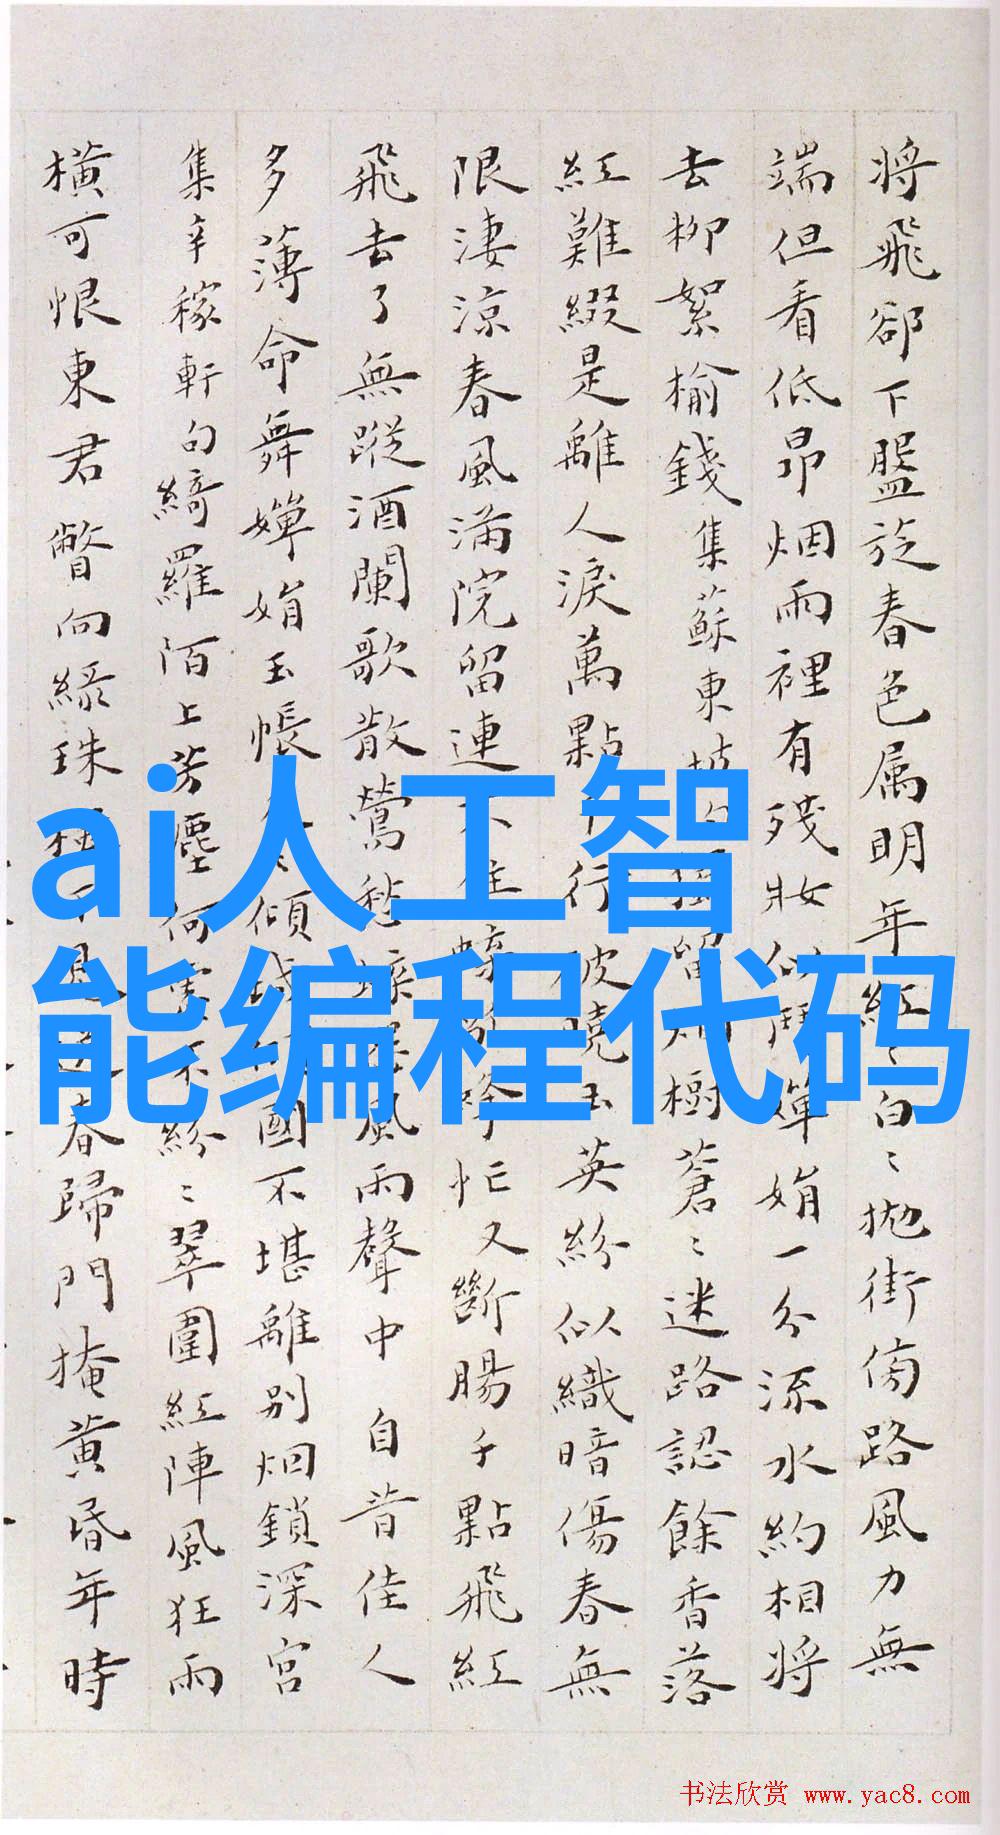 将飛卻下盤旋春色属明年紅〻白〻拋街傍路風力無
端但看低昂烟雨裡有殘妝似鬥嬋娟一分流水約相將
去柳絮榆錢集蘇東坡句 留 樹蒼〻迷路認餘香落
紅難綴是離人淚萬點 行 被曉玉英紛似織暗傷春無
限淒涼春風滿院留連 住 忙又斷腸千點飛紅
飛去了無蹤酒闌歌散鶯愁蝶 風雨聲中 自昔佳人
多薄命舞嬋娟玉帳 傾城 國不堪離別烟鎖深宮
集辛稼軒句綺羅陌上芳塵何 不紛〻翠圍紅陣風狂雨
橫可恨東君瞥向綠珠 見 春歸門掩黃昏年時
ai人工智
能编程代码
书法欣赏 www.yac8.com